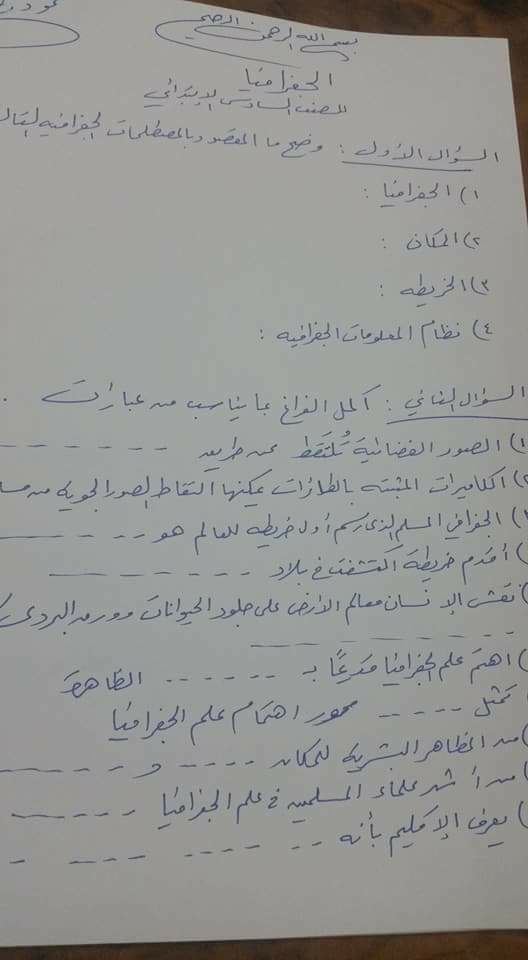 بسم الله الرحمن الرحيم
الجغرافيا
الصف السادس الابتدائي
السؤال الأول : وضح ما المقصود بالمصطلحات الجغرافيه التال
١) الجغرافيا :
٢) المكان :
٣) الخريطه :
٤) نظام المعلومات الجغرافيه :
السؤال الثاني : أكمل الفراغ بما يناسب من عبارات .
١) الصور الفضائية تُلتقط عن طريق ـ ـ ـ ـ ـ ـ ـ
٢) الكاميرات المثبته بالطائرات يمكنها التقاط الصور الجويه من
٣) الجغرافي المسلم الذى رسم أول خريطه للعالم هو ـ ـ ـ ـ ـ ـ
) أقدم خريطة اكتشفت في بلاد ـ ـ ـ ـ ـ ـ ـ ـ
) نقش الإنسان معالم الأرض على جلود الحيوانات وورق البردى
) اهتم علم الجغرافيا قديمًا بـ ـ ـ ـ ـ ـ ـ الظاهرة
تمثل ـ ـ ـ ـ ـ محور اهتمام علم الجغرافيا
) من المظاهر البشريه للمكان ـ ـ ـ ـ و ـ ـ ـ ـ ـ
) من أشهر علماء المسلمين في علم الجغرافيا ـ ـ ـ ـ ـ
) يعرف الإقليم بأنه ـ ـ ـ ـ ـ ـ ـ ـ ـ